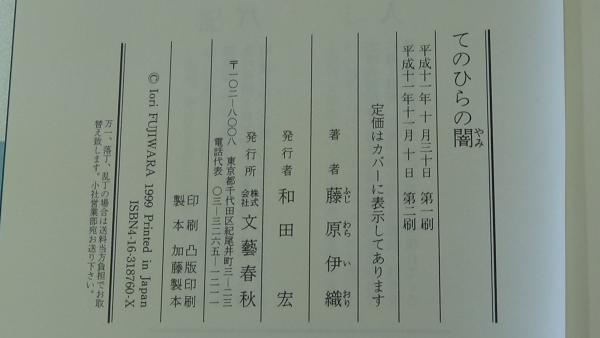 てのひらの闇
やみ
平成十一年 十月三十日 第一刷
平成十一年十一月 十日 第二刷
定価はカバーに表示してあります
著者 藤原伊織
ふじ わら い おり
発行者 和田 宏
発行所 株式会社 文藝春秋
〒一〇二-八〇〇八 東京都千代田区紀尾井町三-二三
電話代表 〇三-三二六五-一二一一
印刷 凸版印刷
製本 加藤製本
© Iori FUJIWARA 1999 Printed in Japan
ISBN4-16-318760-X
万一、落丁、乱丁の場合は送料当方負担でお取
替え致します。小社営業部宛お送り下さい。